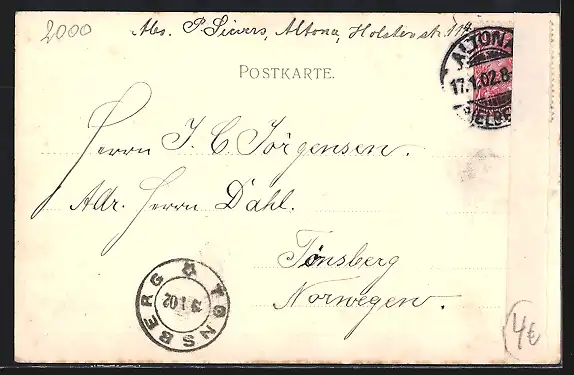 2000
Abs. P. Sievers, Altona, Holstenstr. 114
ALTONA
17.1.02.8-
POSTKARTE.
Herrn J. C. Jörgensen.
Adr. Herrn Dahl.
Tönsberg
Norwegen.
TØNSBERG
1 02
4€